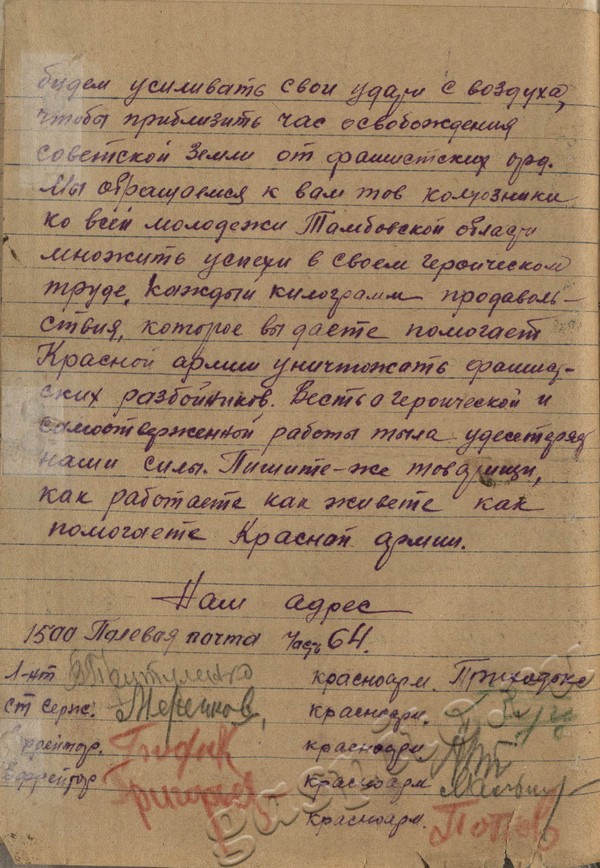 будем усиливать свои удары с воздуха,
чтобы приблизить час освобождения
советской Земли от фашистских орд.
Мы обращаемся к вам тов колхозники
ко всей молодежи Тамбовской области
множить успехи в своем героическом
труде, каждый килограмм продаволь-
ствия, которое вы даете помогает
Красной армии уничтожать фашист-
ских разбойников. Весть о героической и
самоотверженной работы тыла удесетеряет
наши силы. Пишите-же товарищи,
как работаете как живете как
помогаете Красной армии.
Наш адрес
1500 Полевая почта часть 64.
Л-нт красноарм. Приходько
ст серж. красноарм.
Ефрейтор. красноарм
Ефрейтор Григорьев красноарм
красноарм. Попов